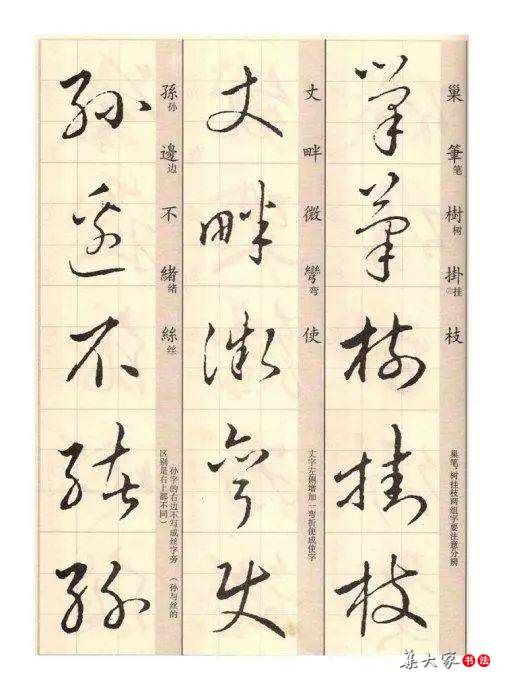 巢筆樹掛枝
巢筆笔樹树掛挂枝
巢笔、树挂枝两组字要注意分辨
丈畔微彎使
丈畔微彎弯使
丈字左侧增加一弯折便成使字
孫邊不緒絲
孫孙邊边不緒绪絲丝
孙字的右边不写成丝字旁（孙与丝的
区别是右上部不同）
集大家书法